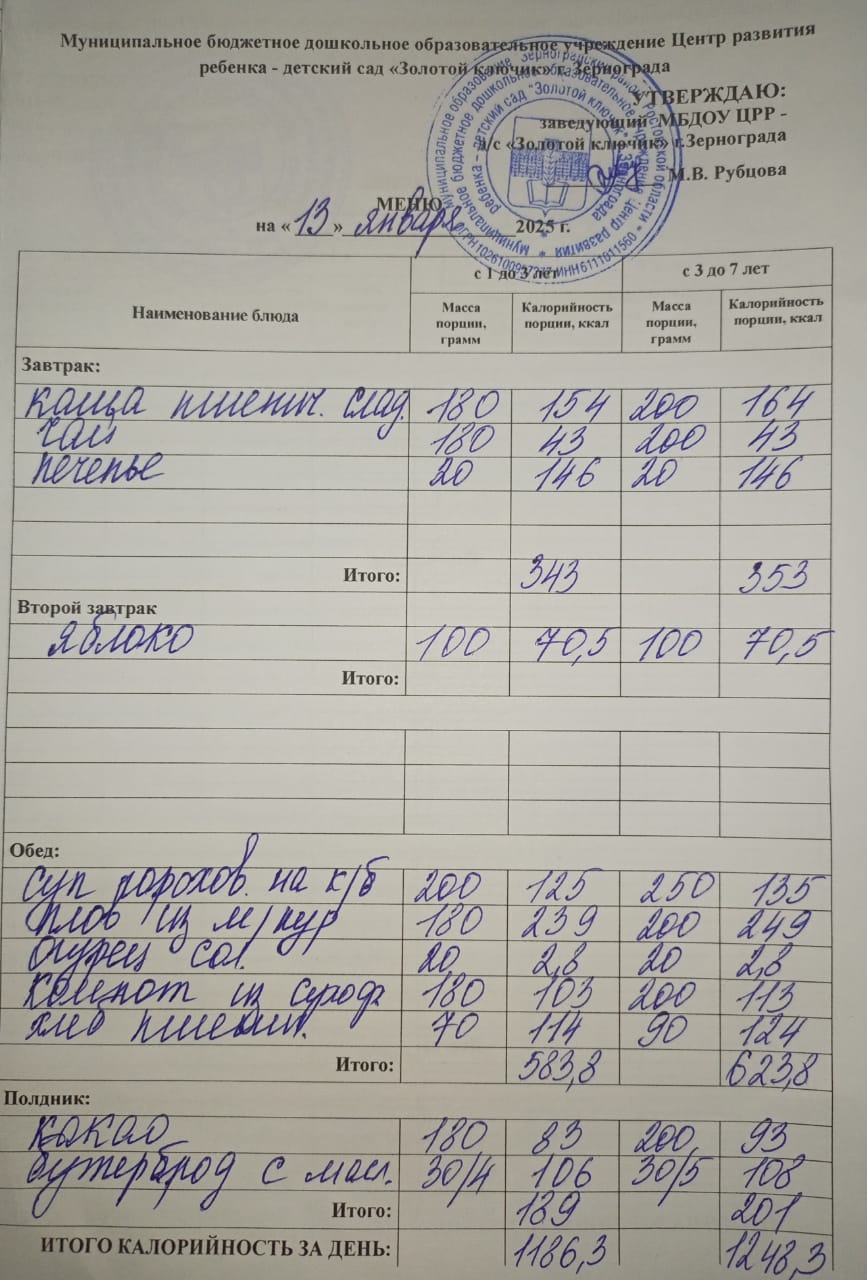 Муниципальное бюджетное дошкольное образовательное учреждение Центр развития
ребенка - детский сад «Золотой ключик» г. Зернограда
УТВЕРЖДАЮ:
заведующий МБДОУ ЦРР -
д/с «Золотой ключик» г.Зернограда
М.В. Рубцова
МЕНЮ
на «13» января 2025 г.
с 1 до 3 лет с 3 до 7 лет
Наименование блюда Масса порции, грамм Калорийность порции, ккал Масса порции, грамм Калорийность порции, ккал
Завтрак:
каша пшенич. слад. 180 154 200 164
чай 180 43 200 43
печенье 20 146 20 146
Итого: 343 353
Второй завтрак
яблоко 100 70,5 100 70,5
Итого:
Обед:
суп горохов. на к/б 200 125 250 135
плов из м/кур 180 239 200 249
огурец сол. 20 2,8 20 2,8
компот из сухоф 180 103 200 113
хлеб пшенич. 70 114 90 124
Итого: 583,8 623,8
Полдник:
какао 180 83 200 93
бутерброд с масл. 30/4 106 30/5 108
Итого: 189 201
ИТОГО КАЛОРИЙНОСТЬ ЗА ДЕНЬ: 1186,3 1248,3